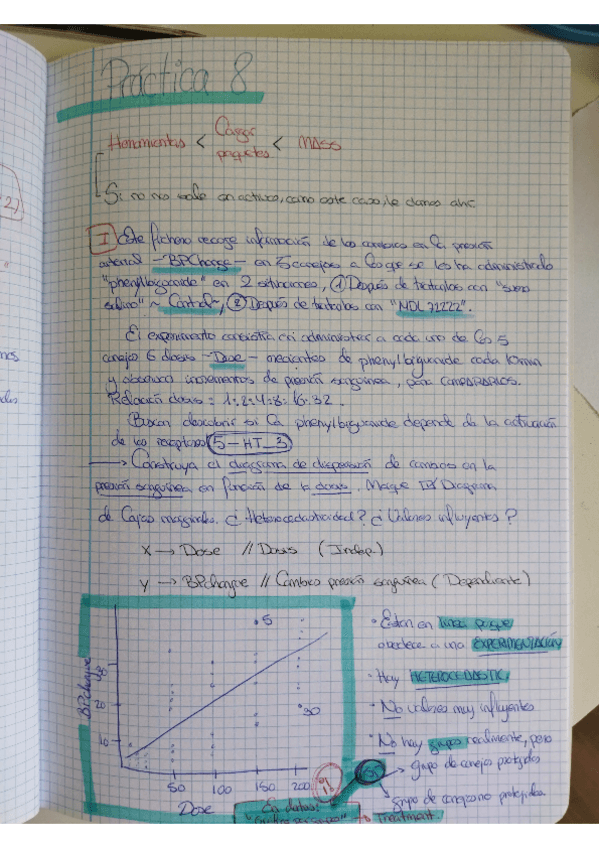 Práctica 8
Herramientas < Cargar paquetes < MASS
Si no nos sale en activos, como este caso, le damos ahí
I Este fichero recoge información de los cambios en la presión
arterial -BPChange- en 5 conejos a los que se les ha administrado
"phenylbiguanide" en 2 situaciones, ① Después de tratarlos con "suero
salino" ~ Control~, ② Después de tratarlos con "MDL 72222".
El experimento consistía en administrar a cada uno de los 5
conejos 6 dosis -Dose- crecientes de phenylbiguanide cada 10min
y observar incrementos de presión sanguínea, para COMPARARLOS.
Relación dosis: 1:2:4:8:16:32.
Buscan descubrir si la phenylbiguanide depende de la activación
de los receptores 5-HT_3
→ Construya el diagrama de dispersión de cambios en la
presión sanguínea en función de la dosis. Marque Diagrama
de Cajas marginales. ¿Heterocedasticidad? ¿Valores influyentes?
X → Dose // Dosis (Indep.)
Y → BPchange // Cambios presión sanguínea (Dependiente)
BPchange
30
20
10
50 100 150 200
Dose
5
30
· Están en línea porque
obedece a una EXPERIMENTACIÓN
· Hay HETEROCEDASTIC.
· No valores muy influyentes
· No hay grupos realmente, pero
grupo de conejos protegidos
grupo de conejos no protegidos
→ Treatment